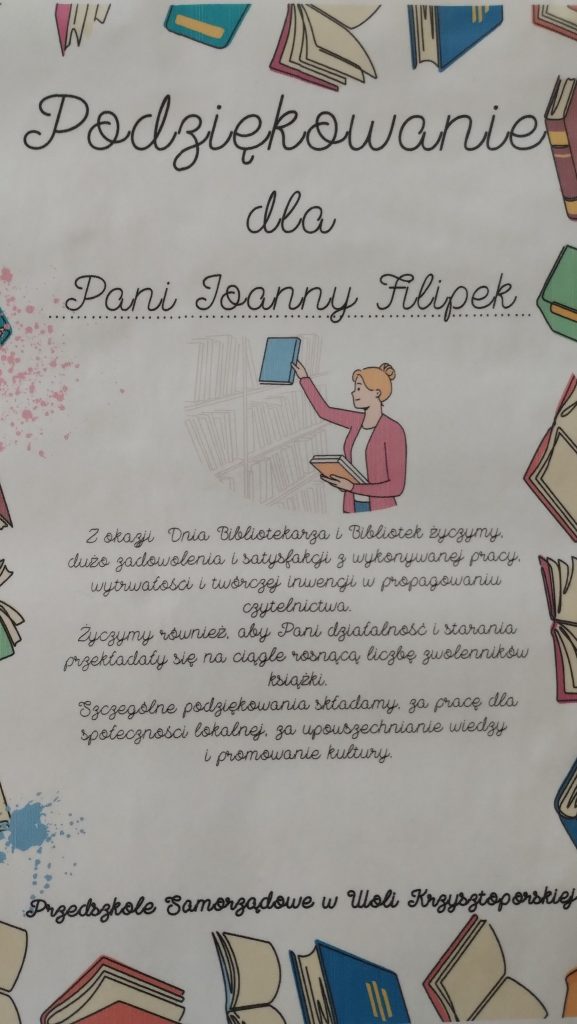 Podziękowanie
dla
Pani Joanny Filipek
Z okazji Dnia Bibliotekarza i Bibliotek życzymy,
dużo zadowolenia i satysfakcji z wykonywanej pracy,
wytrwałości i twórczej inwencji w propagowaniu
czytelnictwa.
Życzymy również, aby Pani działalność i starania
przekładały się na ciągle rosnącą liczbę zwolenników
książki.
Szczególne podziękowania składamy, za pracę dla
społeczności lokalnej, za upowszechnianie wiedzy
i promowanie kultury.
Przedszkole Samorządowe w Woli Krzysztoporskiej